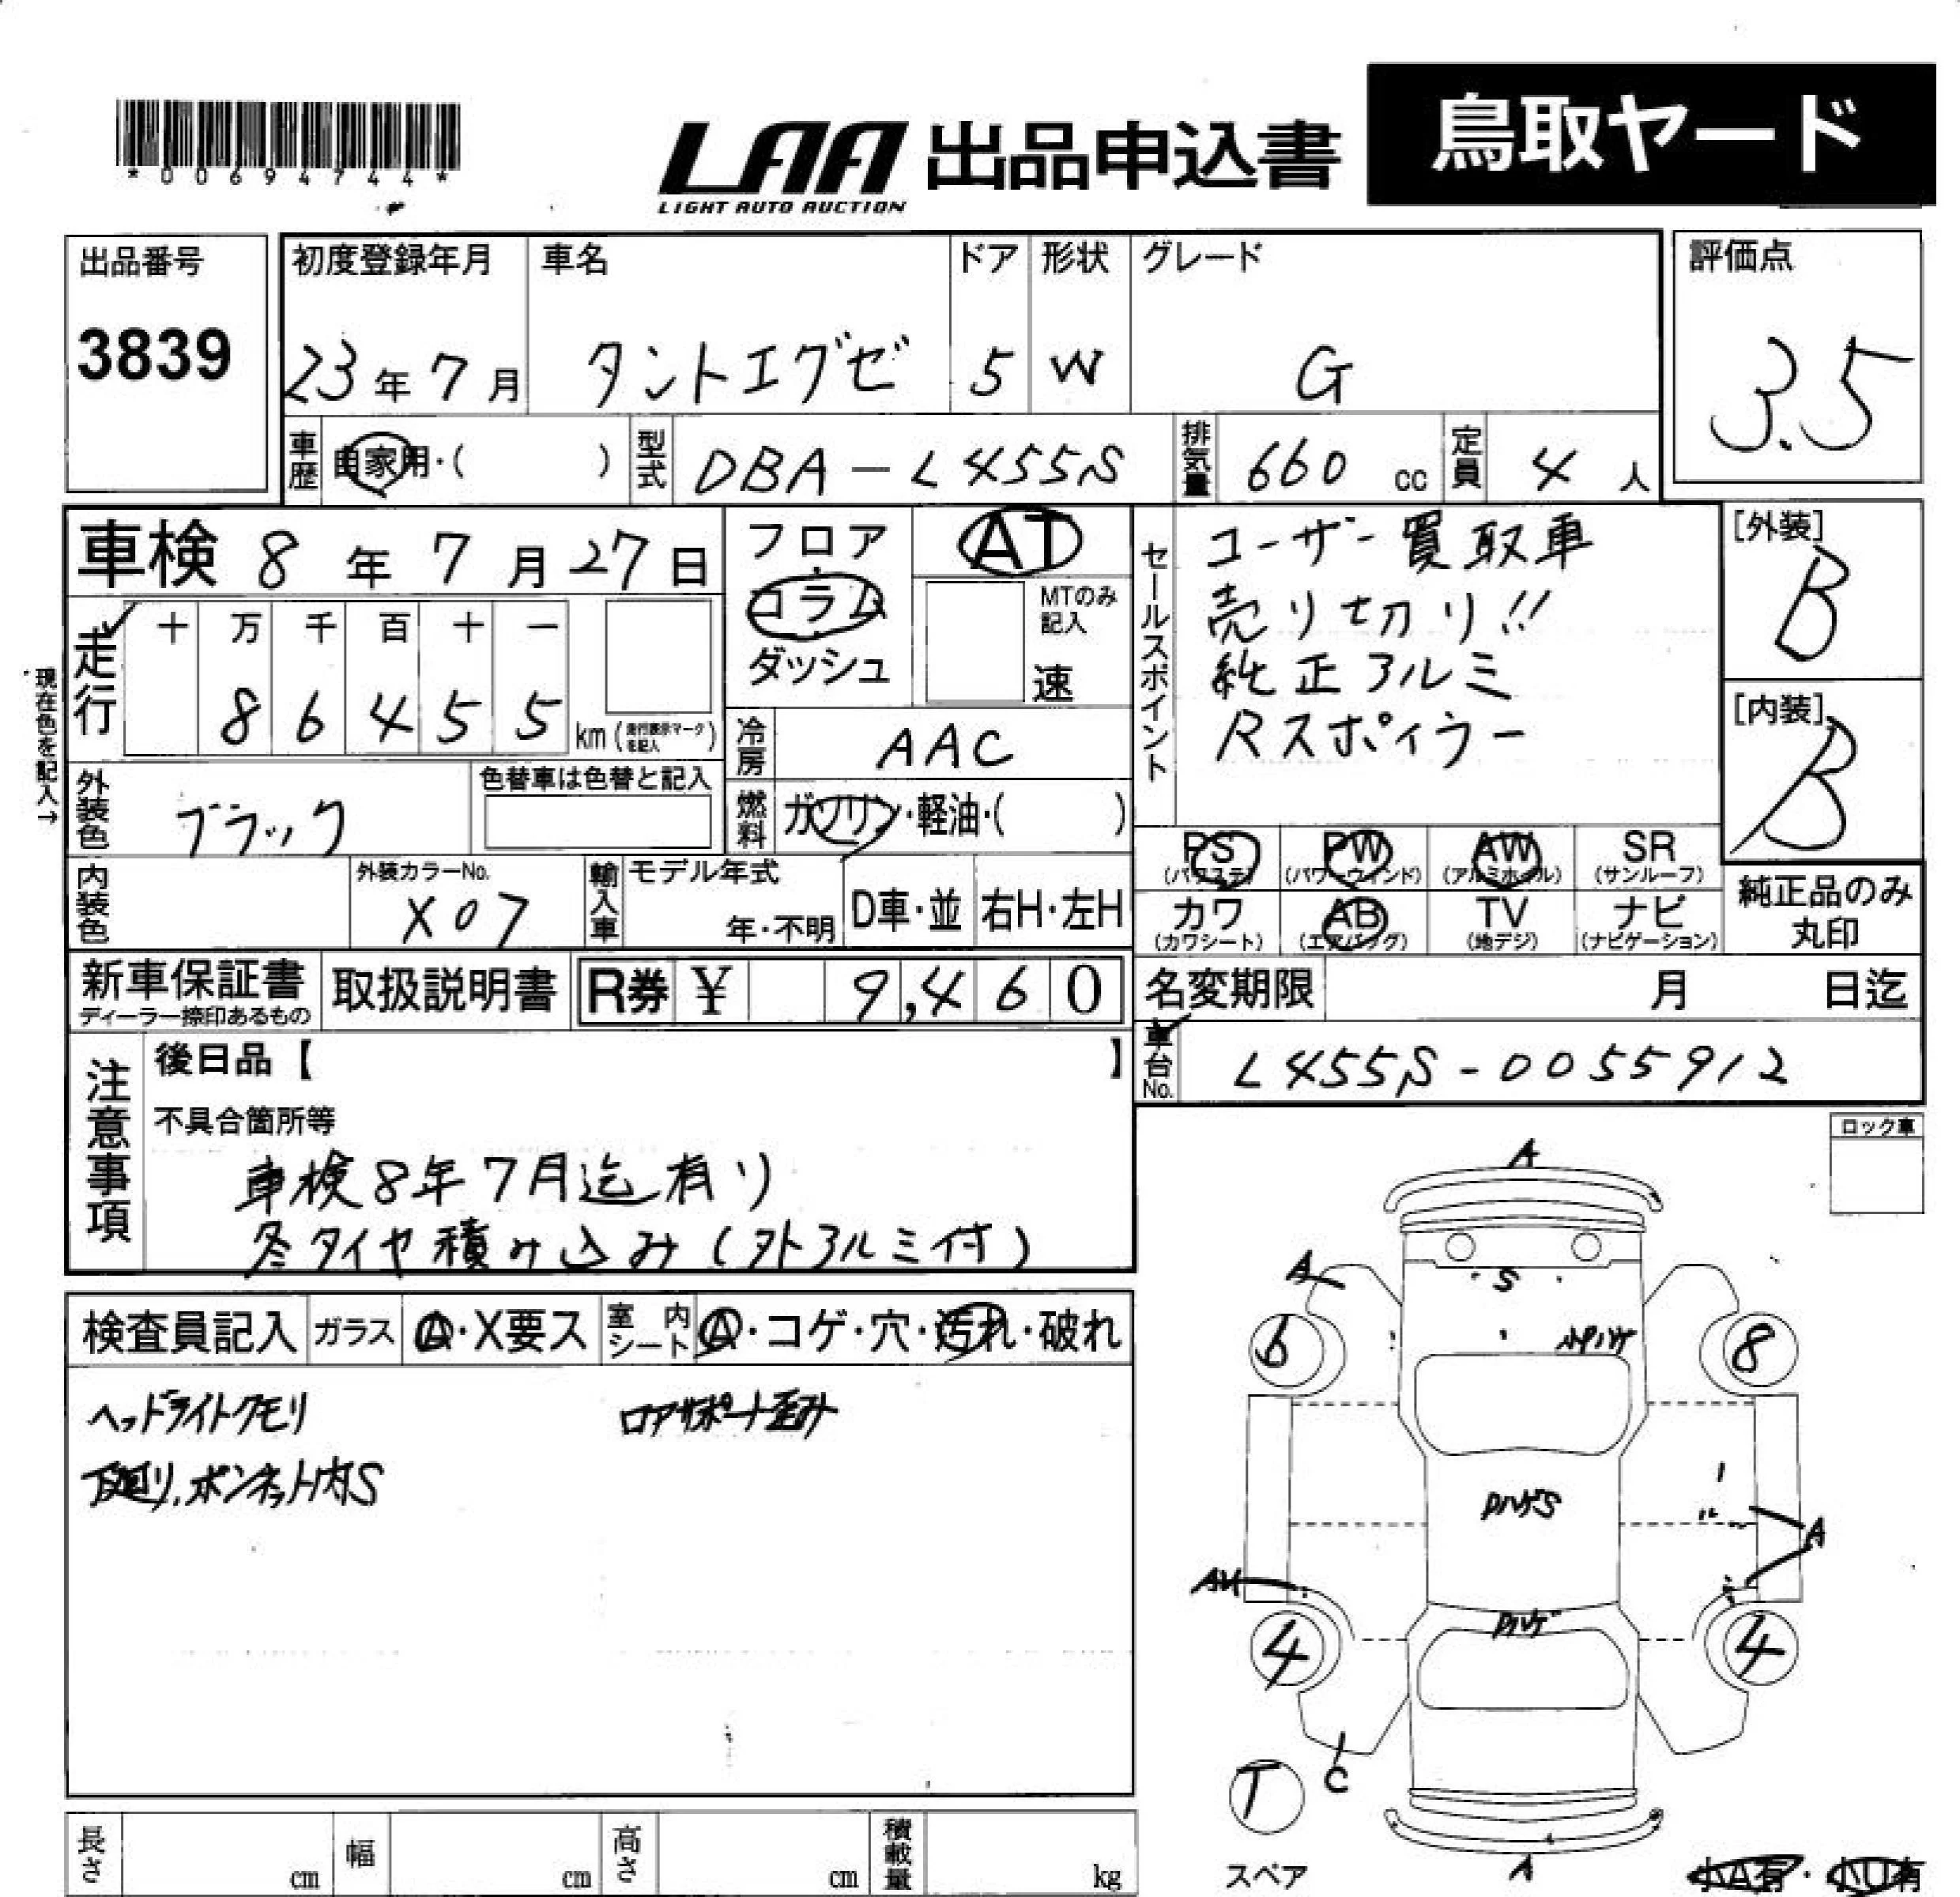 *00694744*
LAA 出品申込書 鳥取ヤード
LIGHT AUTO AUCTION
出品番号
3839
初度登録年月
23年7月
車名
タントエグゼ
ドア
5
形状
W
グレード
G
評価点
3.5
車歴 自家用・( )
型式 DBA-L455S
排気量 660 cc
定員 4人
車検 8年7月27日
フロア・コラム
ダッシュ
AT
MTのみ記入
速
走行
十 万 千 百 十 一
8 6 4 5 5 km (走行表示マークを記入)
現在色を記入→
冷房 AAC
外装色 ブラック
色替車は色替と記入
燃料 ガソリン・軽油・( )
内装色
外装カラーNo.
X07
輸入車 モデル年式
年・不明
D車・並 右H・左H
セールスポイント
ユーザー買取車
売り切り!!
純正アルミ
Rスポイラー
[外装]
B
[内装]
B
PS (パワステ) PW (パワーウィンド) AW (アルミホイル) SR (サンルーフ)
カワ (カワシート) AB (エアバッグ) TV (地デジ) ナビ (ナビゲーション)
純正品のみ
丸印
新車保証書
ディーラー捺印あるもの
取扱説明書
R券 ¥ 9,460
名変期限 月 日迄
車台No. L455S-0055912
注意事項
後日品【 】
不具合箇所等
車検8年7月迄有り
冬タイヤ積み込み(外アルミ付)
ロック車
検査員記入 ガラス A・X要ス 室内シート A・コゲ・穴・汚れ・破れ
ヘッドライトクモリ
ロアサポート歪み
下廻り、ボンネット内S
A
A
S
6
小Pハゲ
8
PハゲS
A
AU
Pハゲ
4
4
C
T
スペア
A
小A有・小U有
長さ cm 幅 cm 高さ cm 積載量 kg